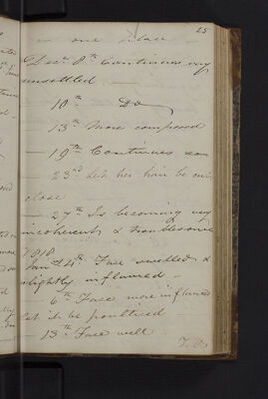 25
in one place
Decr 8th Continues very
unsettled —
— 10th Do
— 13th More composed
— 19th Continues so
23rd Let her hair be cut
close —
— 27th Is becoming very
incoherent & troublesome
1818
Jany 4th Face swelled &
slightly inflamed —
— 6th Face more inflamed
let it be poulticed
— 13th Face well